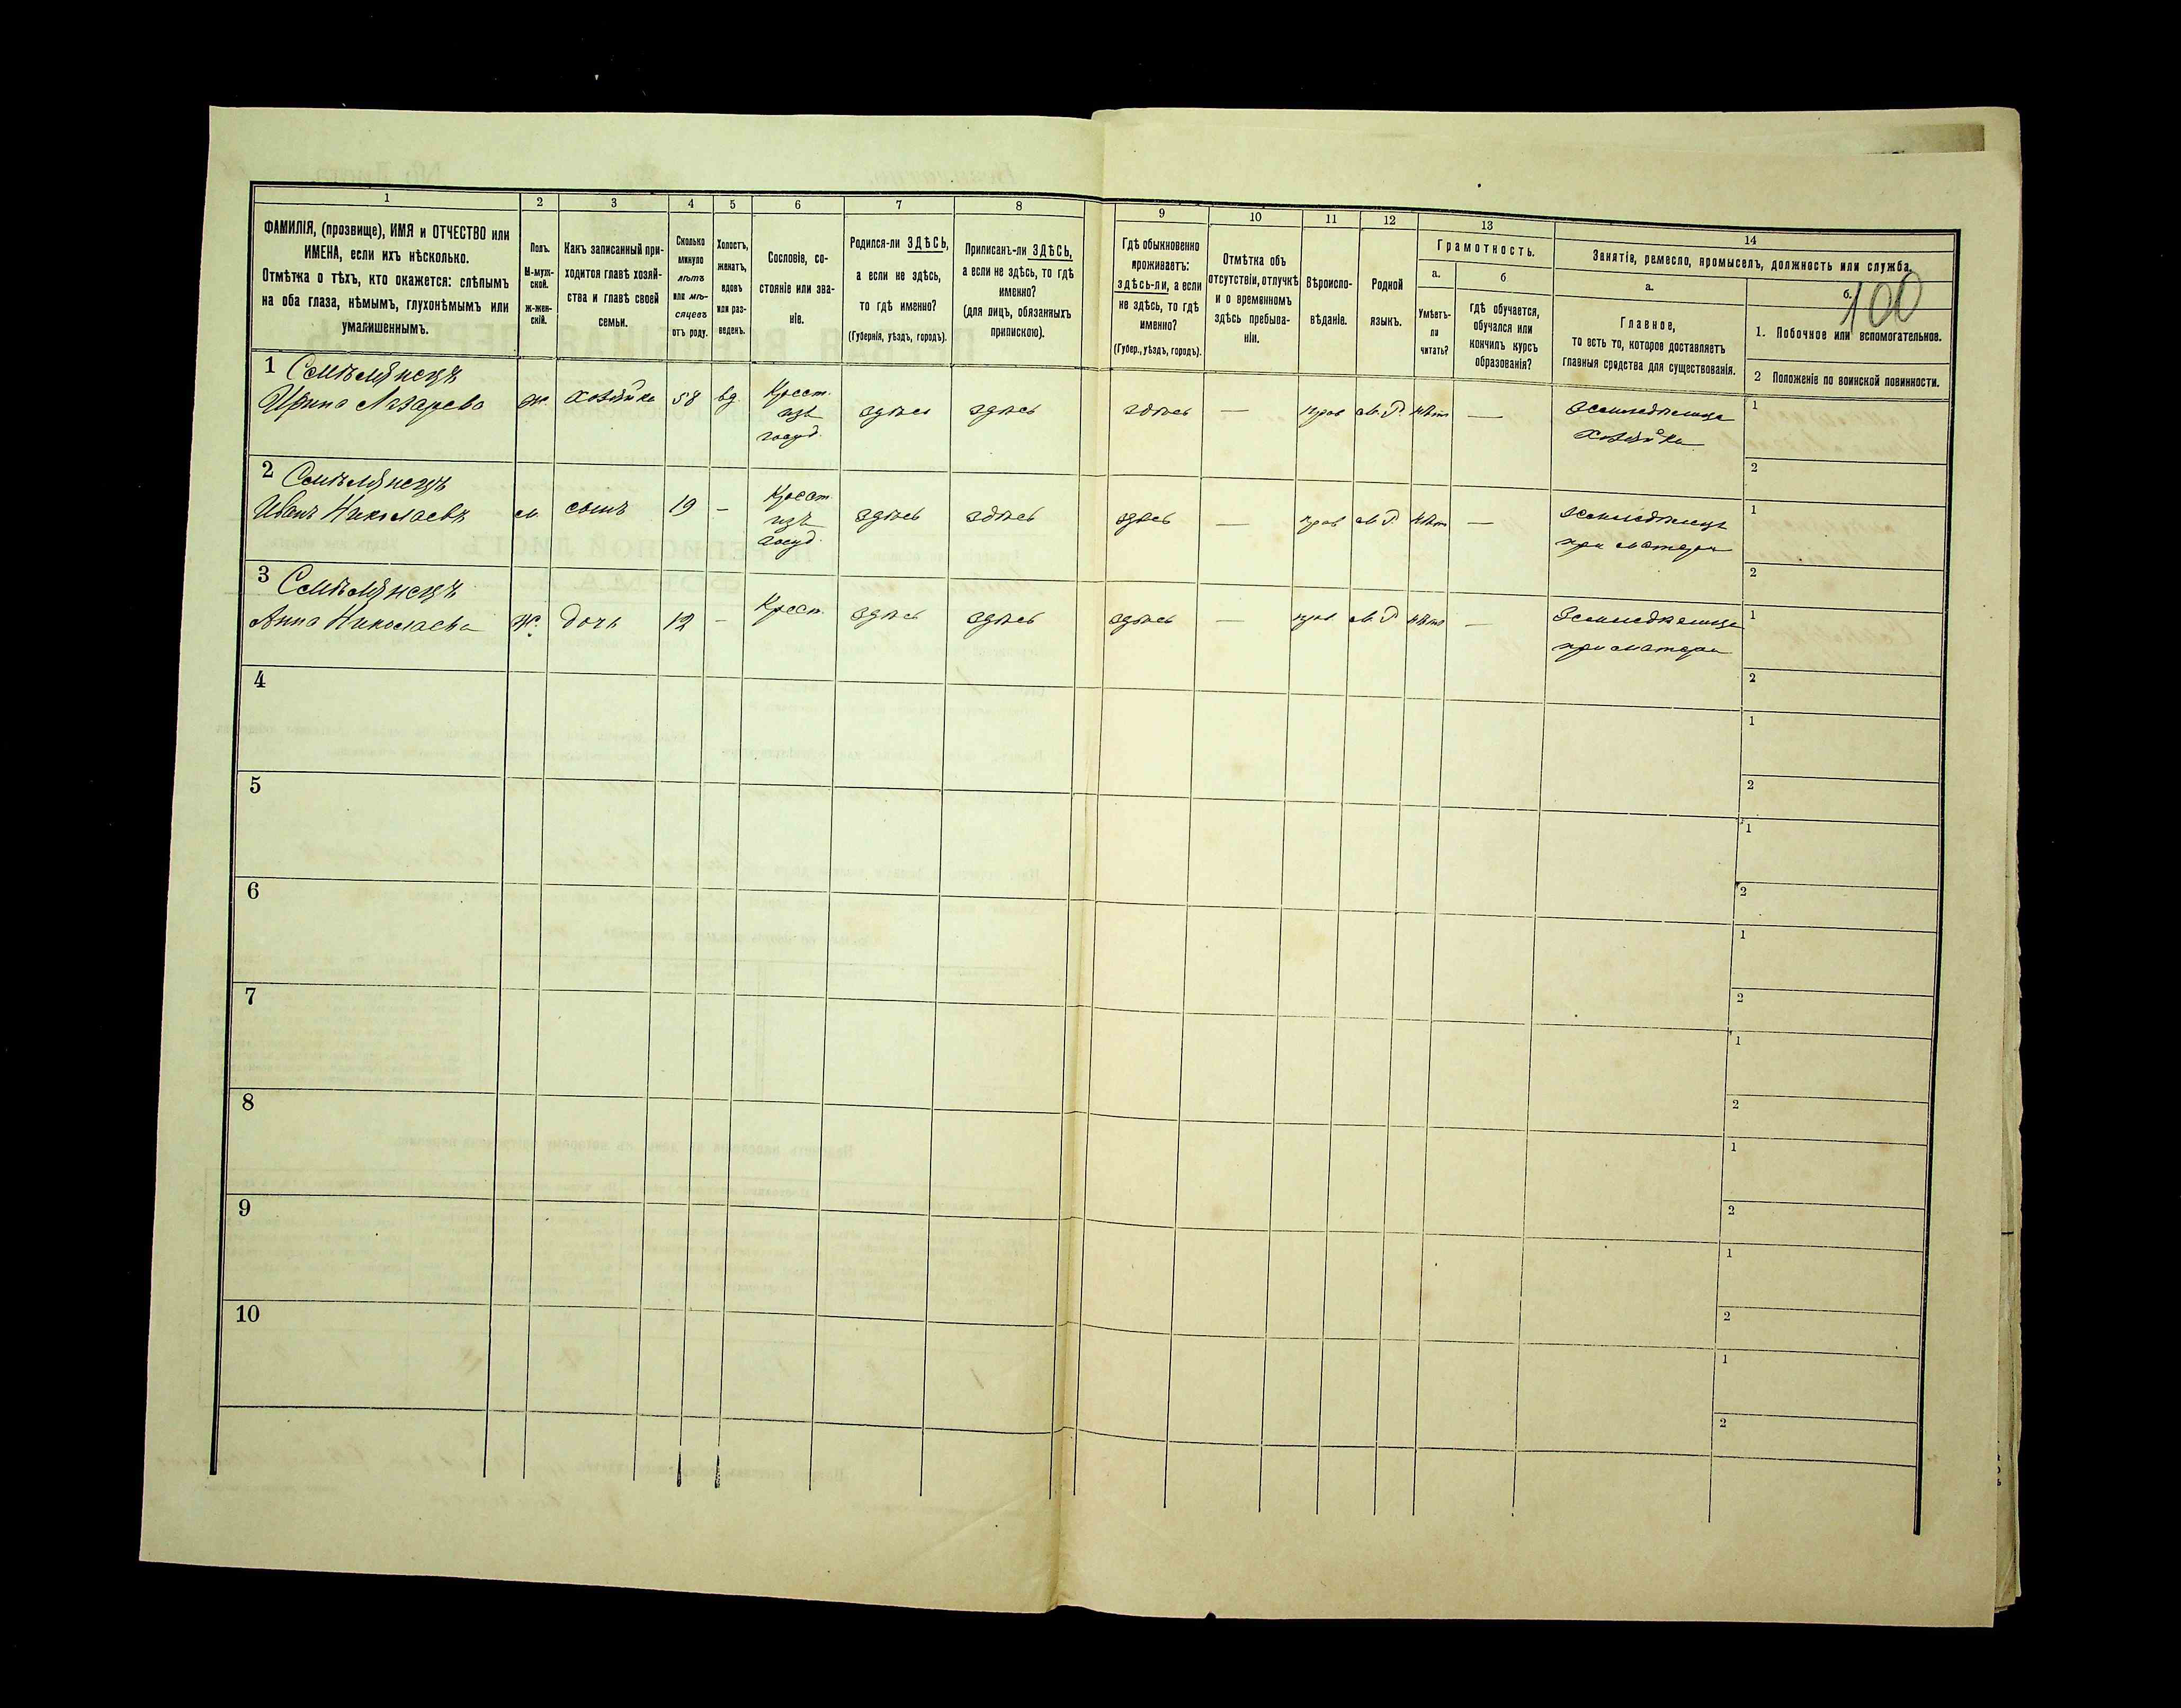 1
2
3
4
5
6
7
8
9
10
11
12
13
14
ФАМИЛІЯ, (прозвище), ИМЯ и ОТЧЕСТВО или
ИМЕНА, если ихъ нѣсколько.
Отмѣтка о тѣхъ, кто окажется: слѣпымъ
на оба глаза, нѣмымъ, глухонѣмымъ или
умалишеннымъ.
Полъ.
М-муж-
ской.
ж-жен-
скій.
Какъ записанный при-
ходится главѣ хозяй-
ства и главѣ своей
семьи.
Сколько
минуло
лѣтъ
или мѣ-
сяцевъ
отъ роду.
Холостъ,
женатъ,
вдовъ
или раз-
веденъ.
Сословіе, со-
стояніе или зва-
ніе.
Родился-ли ЗДѢСЬ,
а если не здѣсь,
то гдѣ именно?
(Губернія, уѣздъ, городъ).
Приписанъ-ли ЗДѢСЬ,
а если не здѣсь, то гдѣ
именно?
(для лицъ, обязанныхъ
припискою).
Гдѣ обыкновенно
проживаетъ:
здѣсь-ли, а если
не здѣсь, то гдѣ
именно?
(Губер., уѣздъ, городъ).
Отмѣтка объ
отсутствіи, отлучкѣ
и о временномъ
здѣсь пребыва-
ніи.
Вѣроиспо-
вѣданіе.
Родной
языкъ.
Грамотность.
а.
Умѣетъ-
ли
читать?
б
гдѣ обучается,
обучался или
кончилъ курсъ
образованія?
Занятіе, ремесло, промыселъ, должность или служба.
а.
Главное,
то есть то, которое доставляетъ
главныя средства для существованія.
б.
100
1. Побочное или вспомогательное.
2 Положеніе по воинской повинности.
1
Ирина Лазарева
ж.
хозяйка
58
вд.
Крест.
изъ
госуд.
здѣсь
здѣсь
здѣсь
—
прав
М. Р.
нѣт
—
хозяйка
1
2
2
Иванъ Николаевъ
м.
сынъ
19
—
Крест
изъ
госуд.
здѣсь
здѣсь
здѣсь
—
прав
М. Р.
нѣт
—
при матери
1
2
3
Анна Николаева
Ж.
дочь
12
—
Крест.
здѣсь
здѣсь
здѣсь
—
прав
М. Р
нѣт
—
при матери
1
2
4
1
2
5
1
2
6
1
2
7
1
2
8
1
2
9
1
2
10
1
2